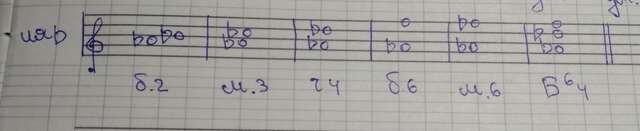 б.2 м.3 ч4 б6 м.6 Б⁶₄